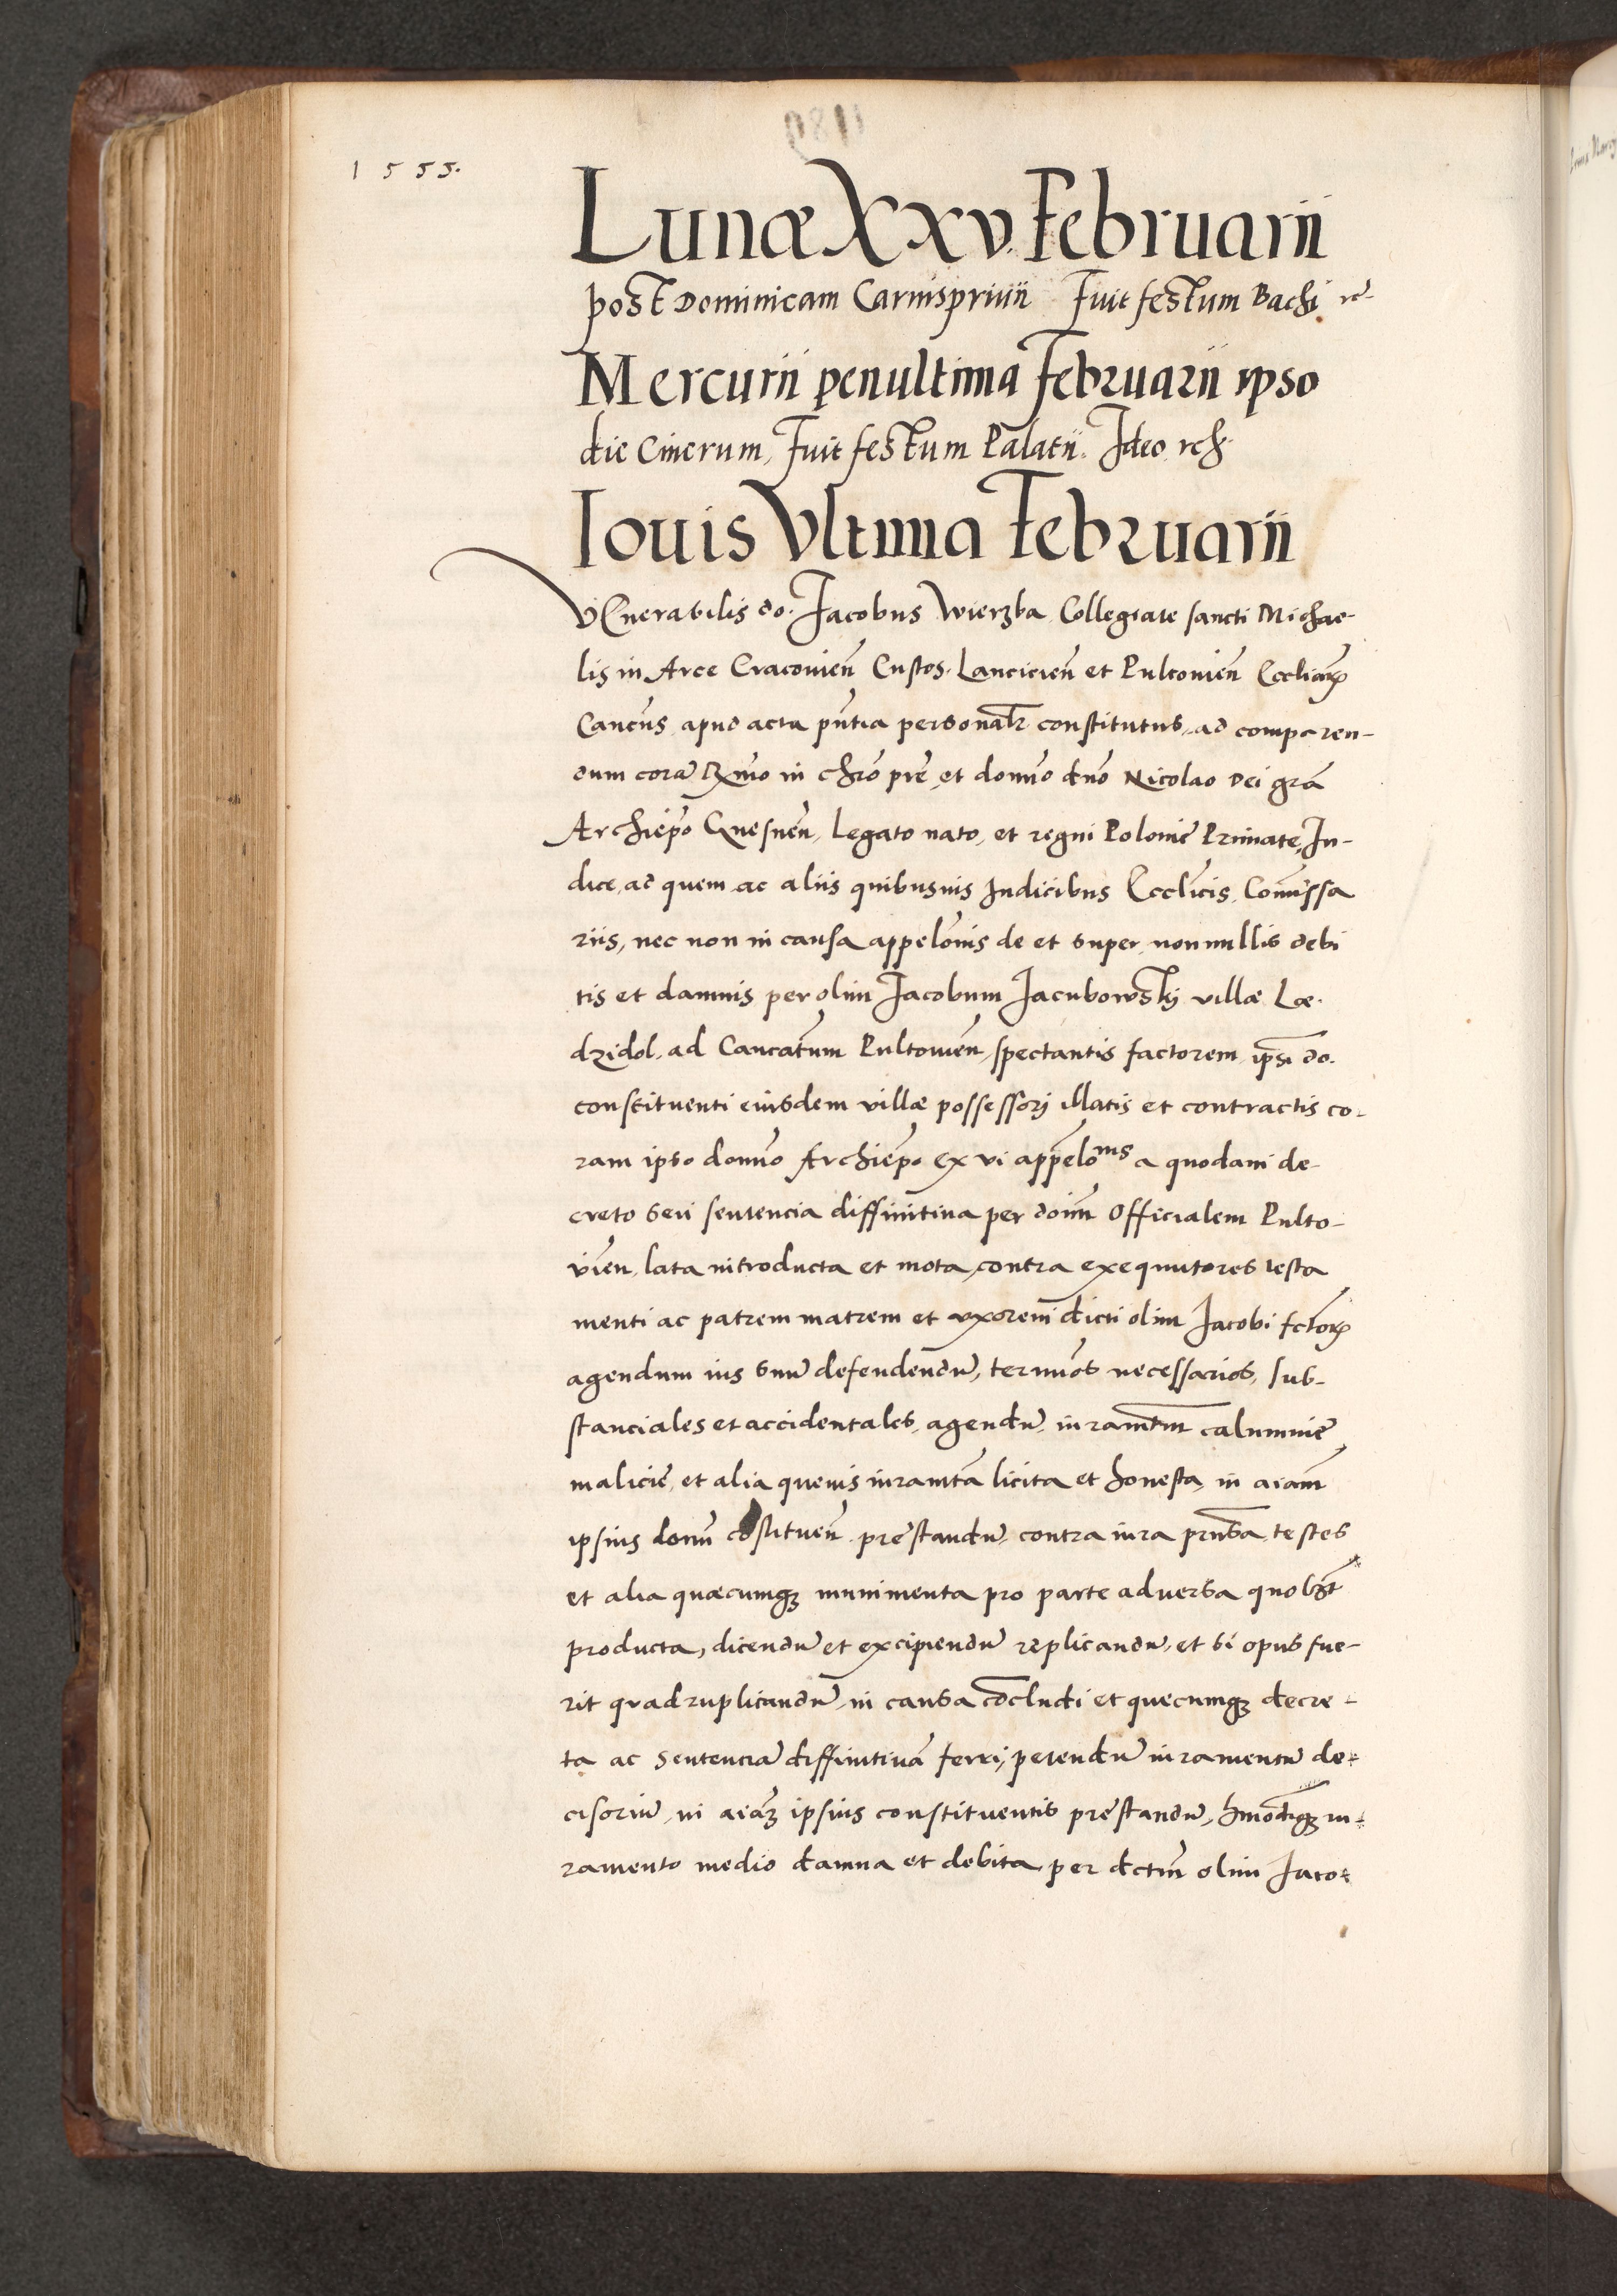 1555.
Lunæ XXV. Februarii
post Dominicam Carnisprivii Fuit festum Bachi rc̃
Mercurii penultima Februarii ipso
die Cinerum, Fuit festum Palatii. Ideo rc̃
Iouis Vltima Februarii
VEnerabilis do. Jacobus Wierzba Collegiate sancti Michae-
lis in Arce Cracovien̄ Custos. Lancicien̄ et Pultovien̄ Eccliarꝝ
Cancus, apud acta pn̄tia personalr̄ constitutus, ad comparen-
dum corā Rx̄mo in chr̄o pr̄e, et domn̄o dn̄o Nicolao Dei grā
Archiep̄o Gnesnen̄, Legato nato, et regni Polonie Primate, Ju-
dice, ad quem ac aliis quibusuis Judicibus Eccl̄icis, Com̄issa
riis, nec non in causa appelon̄is de et super nonnullis debi
tis et damnis per olim Jacobum Jacubowskj villæ Lœ.
dzidol, ad Cancatum̄ Pultovien̄, spectantis factorem, ips̄i do.
constituenti eiusdem villæ possessorj illatis et contractis co-
ram ipso domn̄o Archiep̄o ex vi app̄elo^nis a quodam de-
creto seu sentencia diffinitiua per doim̄ Officialem Pulto-
vien̄, lata introducta et mota, contra exequutores testa
menti ac patrem matrem et vxorem dicti olim Jacobi fctorꝝ
agendum ius suū defendendū, termin̄os necessarios, sub-
stanciales et accidentales, agendū, iuramt̄m calumnie
malicie, et alia quevis iuramt̄a licita et honesta, in aiam̄
ipsius domn̄ cōstituen̄ prestandū, contra iura prn̄sa, testes
et alia quæcumqꝫ munimenta pro parte adversa quo l̄st
producta, dicendū et excipiendū replicandū, et si opus fue-
rit quadruplicandū, in causa cōcludi et quecumqꝫ decre-
ta ac sentenciā diffinitiuā ferrj, petendū iuramentū de-
cisoriū, in aiaꝫ ipsius constituentis prestandū, hmōdiqꝫ iu-
ramento medio damna et debita per dctm̄ olim Jaco-